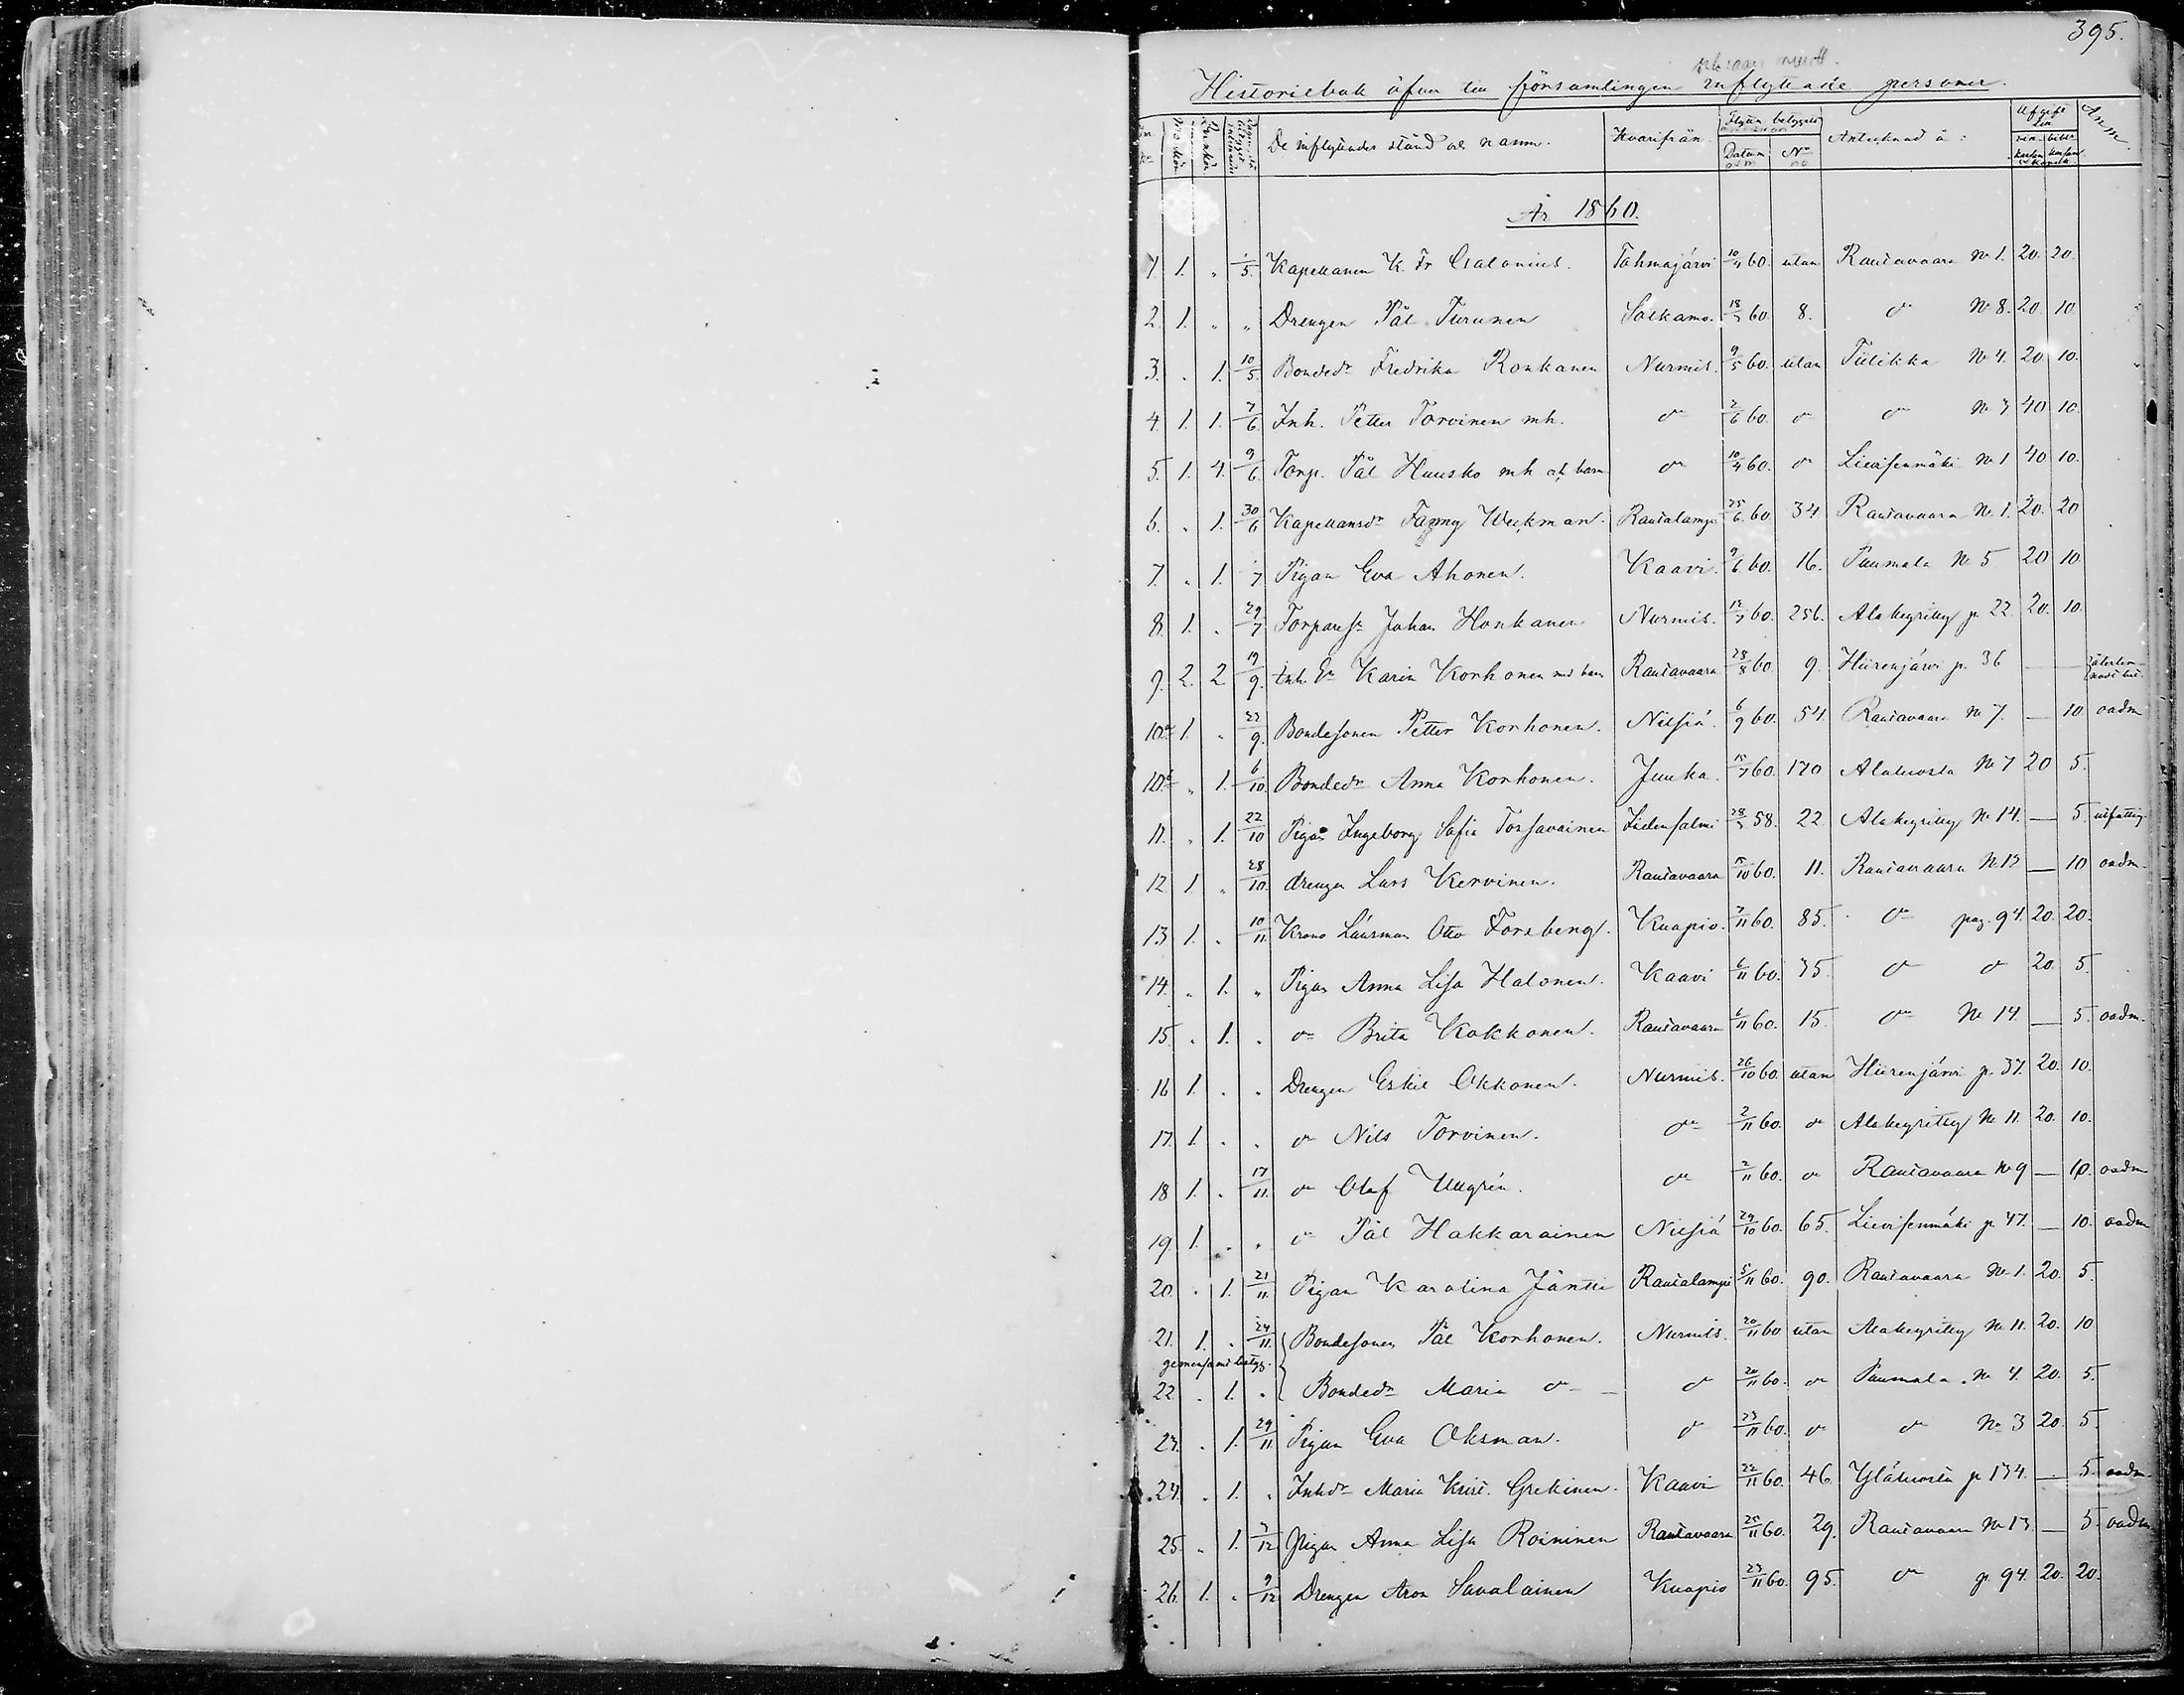 395.
Historiebok öfver till församlingen inflyttade personer.
De inflyttades stånd och namn. Hvarifrån. Datum No Antecknad å: Afgift till Anm.
År 1860.
1 1. " 1/5. Kapellanen K. Fr Calonius. Tohmajärvi 10/4 60. utan Rautavaara No 1. 20. 20.
2. 1. " " Drengen Pål Turunen Sotkamo. 18/3 60. 8. do No 8. 20. 10.
3. . 1. 10/5. Bondedr Fredrika Ronkanen Nurmis. 9/5 60. utan Tiilikka No 4. 20. 10.
4. 1. 1. 7/6 Inh. Petter Torvinen mh. do 2/6 60. do do No 3 40 10.
5. 1. 4. 9/6. Torp. Pål Huusko mh och barn do 10/4 60. do Lievisenmäki No 1 40 10.
6. . 1. 30/6 Kapellansdr Fanny Weckman. Rautalampi 25/6 60. 34 Rautavaara No 1. 20. 20
7. . 1. /7 Pigan Eva Ahonen. Kaavi. 9/6 60. 16. Puumala No 5 20 10
8. 1. . 29/7 Torpareson Johan Honkanen Nurmis. 13/7 60. 256. Alakeyritty p. 22. 20. 10.
9. 2. 2 19/9. Inh. Karin Korhonen med barn Rautavaara 28/8 60. 9. Hiirenjärvi p. 36 —
10a 1. . 22/9. Bondesonen Petter Korhonen. Nilsiä. 6/9 60. 54. Rautavaara No 7. — 10 oadm
10b " 1. 6/10. Bondedr Anna Korhonen. Juuka. 15/7 60. 120 Alaluosta No 7 20 5.
11. " 1. 22/10 Pigan Ingeborg Sofia Torsavainen Idensalmi 28/3 58. 22. Alakeyritty No 14. — 5. utfattig
12 1. " 28/10. drengen Lars Kervinen. Rautavaara 15/10 60. 11. Rautavaara No 13 — 10 oadm.
13 1. . 10/11 Krono Länsman Otto Forsberg. Kuopio. 7/11 60. 85. do pag. 94. 20. 20.
14. " 1. " Pigan Anna Lisa Halonen. Kaavi 6/11 60. 35. do do 20. 5.
15. . 1. . do Brita Kokkonen. Rautavaara 6/11 60. 15. do No 14. — 5. oadm.
16 1. . . Drengen Eskil Okkonen. Nurmis. 26/10 60. utan Hiirenjärvi p. 37. 20. 10.
17. 1. . . do Nils Torvinen. do 2/11 60. do Alakeyritty No 11. 20. 10.
18 1. . 17/11. do Olof Ullgrén. do 2/11 60. do Rautavaara No 9 — 10. oadm
19. 1. . . do Pål Hakkarainen Nilsiä 29/10 60. 65. Lievisenmäki p. 47. — 10. oadm
20. . 1. 21/11. Pigan Karolina Jäntti Rautalampi 5/11 60. 90. Rautavaara No 1. 20. 5.
21. 1. . 24/11. Bondesonen Pål Korhonen. Nurmis. 20/11 60 utan Alakeyritty No 11. 20. 10
gemensamt betyg.
22 . 1. . Bondedr Maria do — do 20/11 60. do Puumala No 4. 20. 5.
23. . 1. 29/11. Pigan Eva Oksman. do 23/11 60. do do No 3 20. 5.
24. . 1. . Inhdr Maria Krist. Grekinen. Kaavi 22/11 60. 46. Yläluosta p 134. — 5. oadm.
25. . 1. 3/12 Pigan Anna Lisa Roininen Rautavaara 25/11 60. 29. Rautavaara No 13. — 5. oadm.
26. 1. . 9/12 Drengen Aron Savolainen Kuopio 23/11 60. 95. do p. 94. 20. 20.